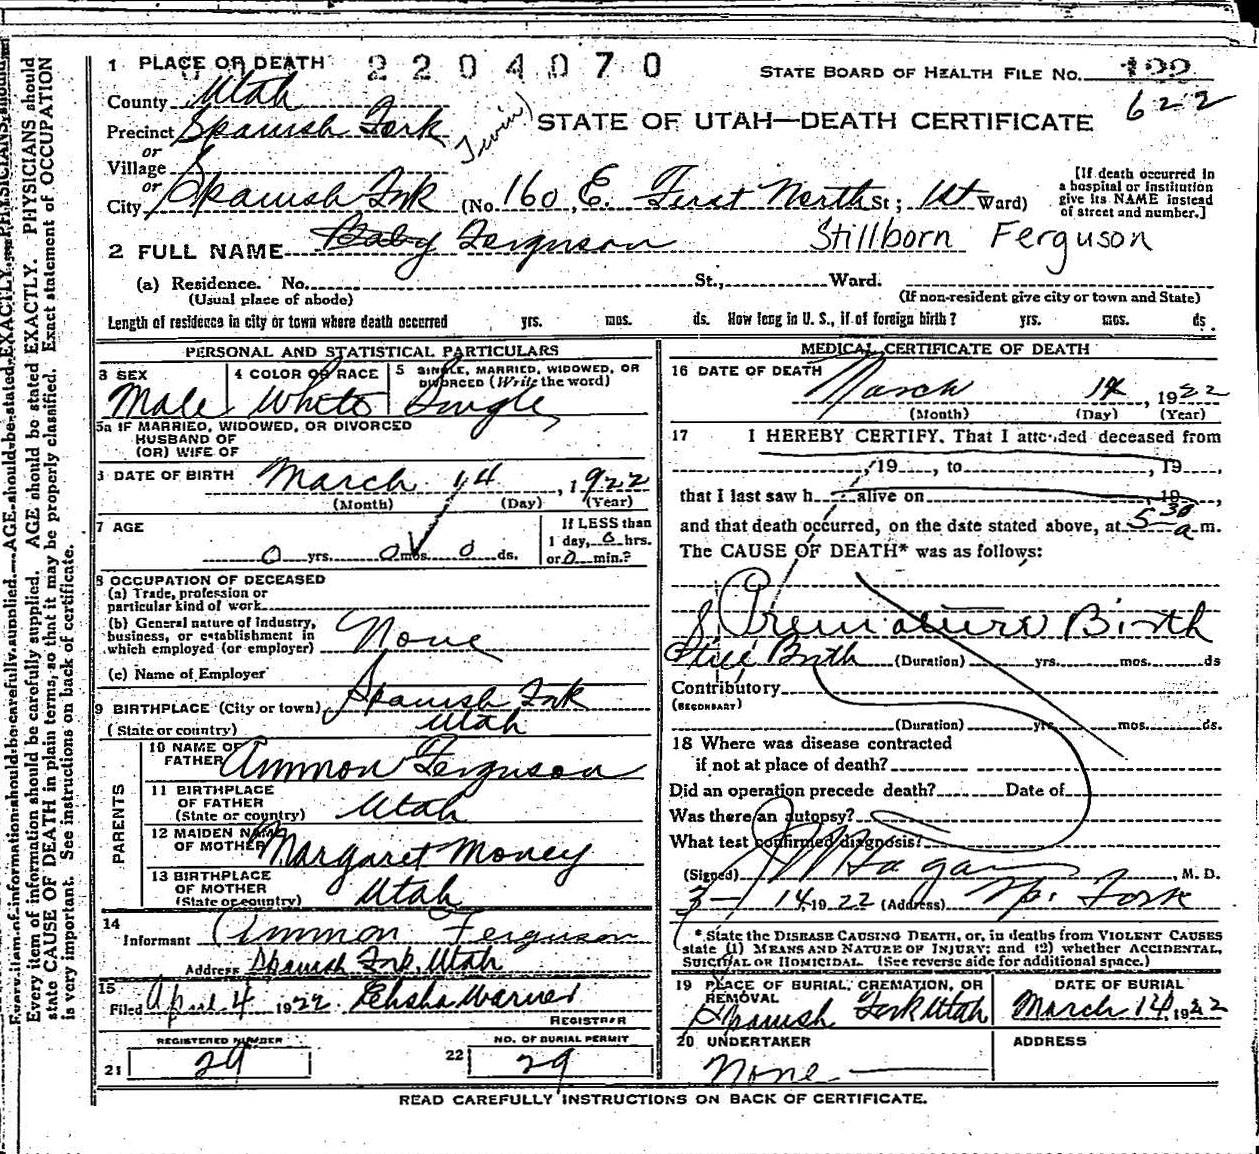 1 PLACE OF DEATH 2204070 STATE BOARD OF HEALTH FILE NO.
622
County Utah
Precinct Spanish Fork
or
Village
or
(Twin)
STATE OF UTAH—DEATH CERTIFICATE
City Spanish Fork (No. 160, E. First North St; 1st Ward)
[If death occurred in
a hospital or institution
give its NAME instead
of street and number.]
2 FULL NAME Baby Ferguson Stillborn Ferguson
(a) Residence. No. St., Ward.
(Usual place of abode) (If non-resident give city or town and State)
Length of residence in city or town where death occurred yrs. mos. ds. How long in U. S., if of foreign birth? yrs. mos. ds.
PERSONAL AND STATISTICAL PARTICULARS
3 SEX
Male
4 COLOR OR RACE
White
5 SINGLE, MARRIED, WIDOWED, OR
DIVORCED (Write the word)
Single
5a IF MARRIED, WIDOWED, OR DIVORCED
HUSBAND OF
(OR) WIFE OF
6 DATE OF BIRTH March 14, 1922
(Month) (Day) (Year)
7 AGE
0 yrs. 0 mos. 0 ds.
If LESS than
1 day, 0 hrs.
or 0 min.?
8 OCCUPATION OF DECEASED
(a) Trade, profession or
particular kind of work
(b) General nature of Industry,
business, or establishment in
which employed (or employer) None
(c) Name of Employer
9 BIRTHPLACE (City or town) Spanish Fork
(State or country) Utah
PARENTS
10 NAME OF
FATHER Ammon Ferguson
11 BIRTHPLACE
OF FATHER
(State or country) Utah
12 MAIDEN NAME
OF MOTHER Margaret Money
13 BIRTHPLACE
OF MOTHER
(State or country) Utah
14
Informant Ammon Ferguson
Address Spanish Fork, Utah
15
Filed April 4 1922 Elisha Warner
REGISTRAR
REGISTERED NUMBER
21 29
NO. OF BURIAL PERMIT
22 29
MEDICAL CERTIFICATE OF DEATH
16 DATE OF DEATH
March 14, 1922
(Month) (Day) (Year)
17 I HEREBY CERTIFY, That I attended deceased from
, 19 , to , 19 ,
that I last saw h alive on , 19 ,
and that death occurred, on the date stated above, at 5 30 a m.
The CAUSE OF DEATH* was as follows:
Premature Birth
Still Birth (Duration) yrs. mos. ds
Contributory
(SECONDARY)
(Duration) yrs. mos. ds.
18 Where was disease contracted
if not at place of death?
Did an operation precede death? Date of
Was there an autopsy?
What test confirmed diagnosis?
(Signed) Hagan, M. D.
3-14, 1922 (Address) Sp. Fork
* State the DISEASE CAUSING DEATH, or, in deaths from VIOLENT CAUSES
state (1) MEANS AND NATURE OF INJURY; and (2) whether ACCIDENTAL,
SUICIDAL OR HOMICIDAL. (See reverse side for additional space.)
19 PLACE OF BURIAL, CREMATION, OR
REMOVAL
Spanish Fork Utah
DATE OF BURIAL
March 14, 1922
20 UNDERTAKER
None
ADDRESS
READ CAREFULLY INSTRUCTIONS ON BACK OF CERTIFICATE.
Every item of information should be carefully supplied. AGE should be stated EXACTLY. PHYSICIANS should
Every item of information should be carefully supplied. AGE should be stated EXACTLY. PHYSICIANS should
state CAUSE OF DEATH in plain terms, so that it may be properly classified. Exact statement of OCCUPATION
is very important. See instructions on back of certificate.